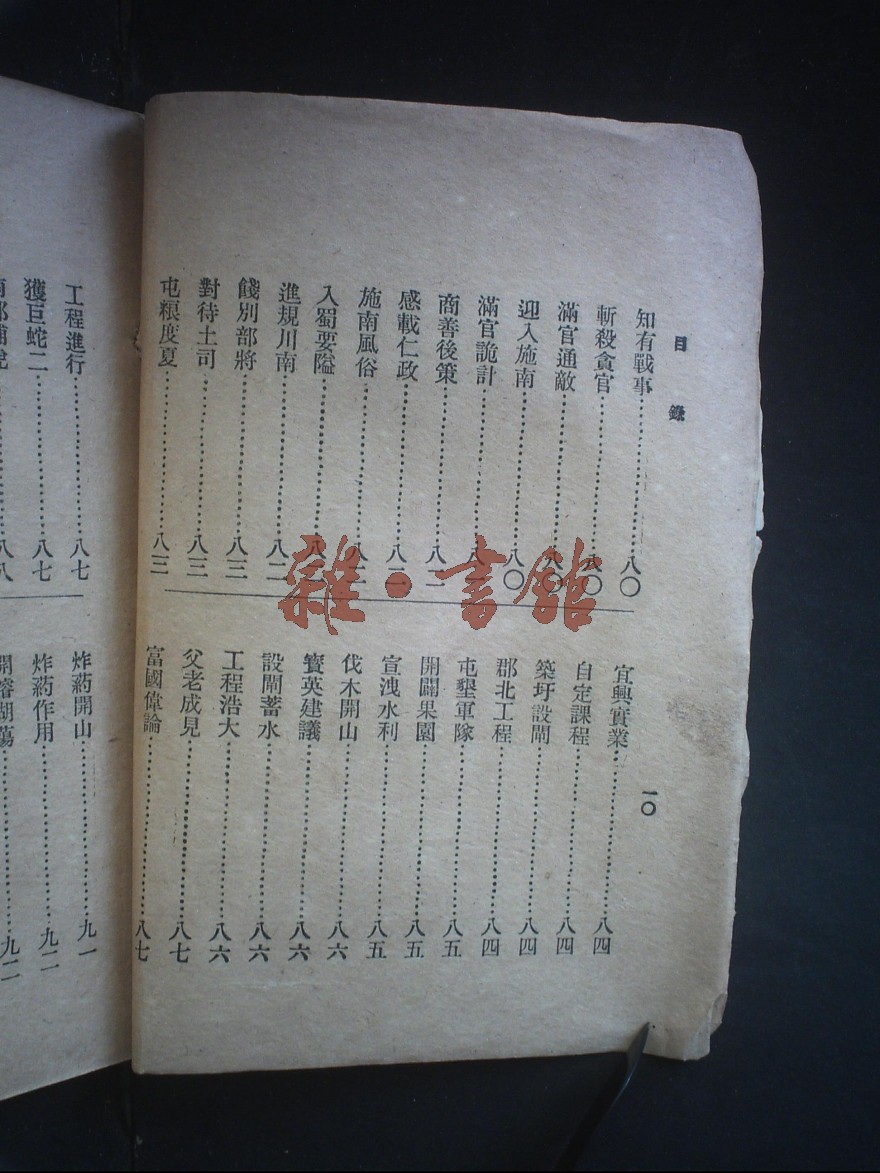 目錄
一〇
知有戰事……八〇
斬殺貪官……八〇
滿官通敵……八〇
迎入施南……八〇
滿官詭計……八
商善後策……八一
感載仁政……八二
施南風俗……八二
入蜀要隘……八二
進規川南……八二
餞別部將……八三
對待土司……八三
屯粮度夏……八三
宜興實業……八四
自定課程……八四
築圩設閘……八四
郡北工程……八四
屯墾軍隊……八五
開闢果園……八五
宣洩水利……八五
伐木開山……八六
簧英建議……八六
設閘蓄水……八六
工程浩大……八六
父老成見……八七
富國偉論……八七
工程進行……八七
獲巨蛇二……八七
八八
炸葯開山……九一
炸葯作用……九二
開濬湖蕩……九二
雜·書館